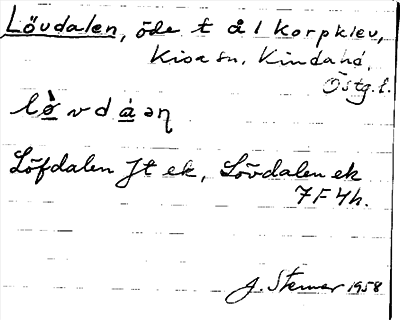 Lövdalen, öde t å 1 Korpklev,
Kisa sn, Kinda hd,
Östg. l.
lø̀vdáən
Löfdalen Jt ek, Lövdalen ek
7F4h.
J. Sterner 1958